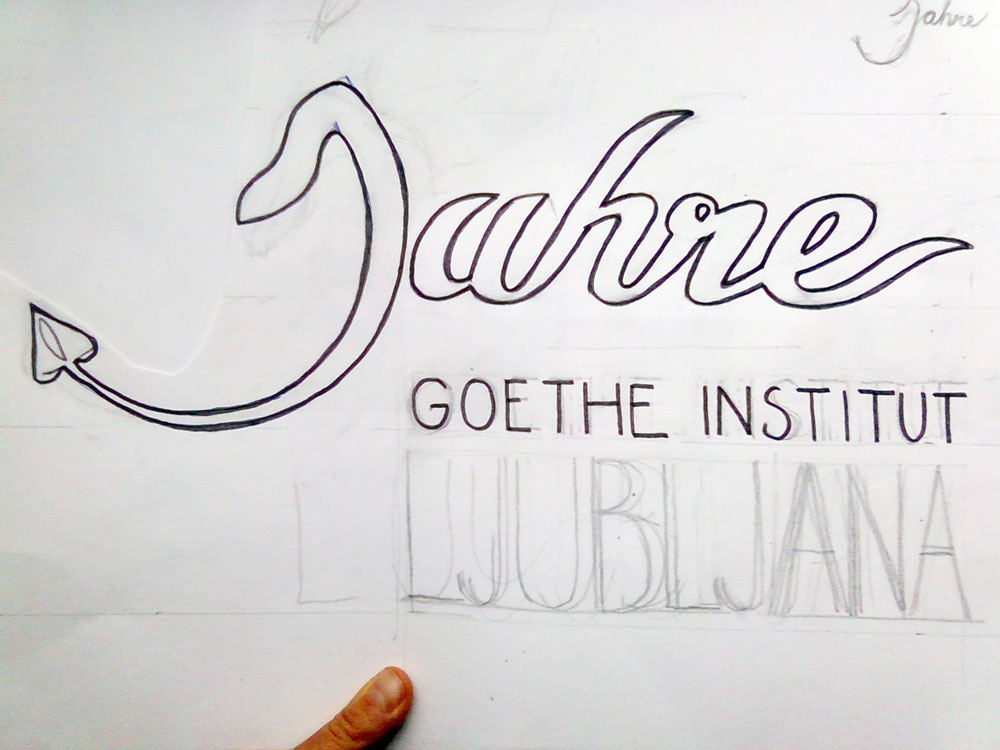 Jahre
Jahre
GOETHE INSTITUT
LJUBLJANA